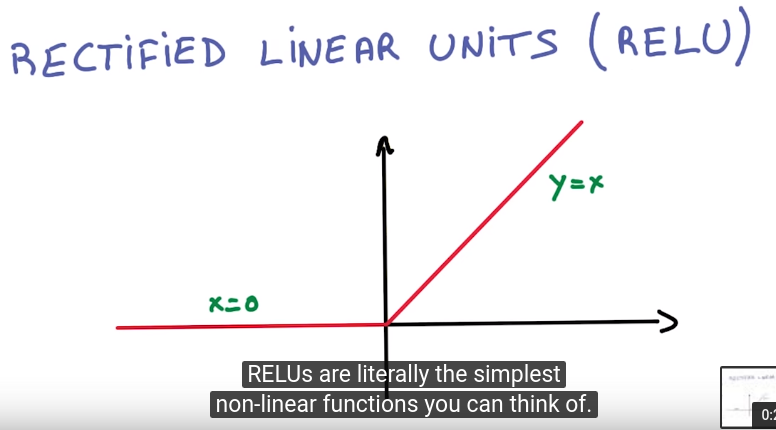 RECTIFIED LINEAR UNITS (RELU)
y=x
x=0
RELUs are literally the simplest
non-linear functions you can think of.